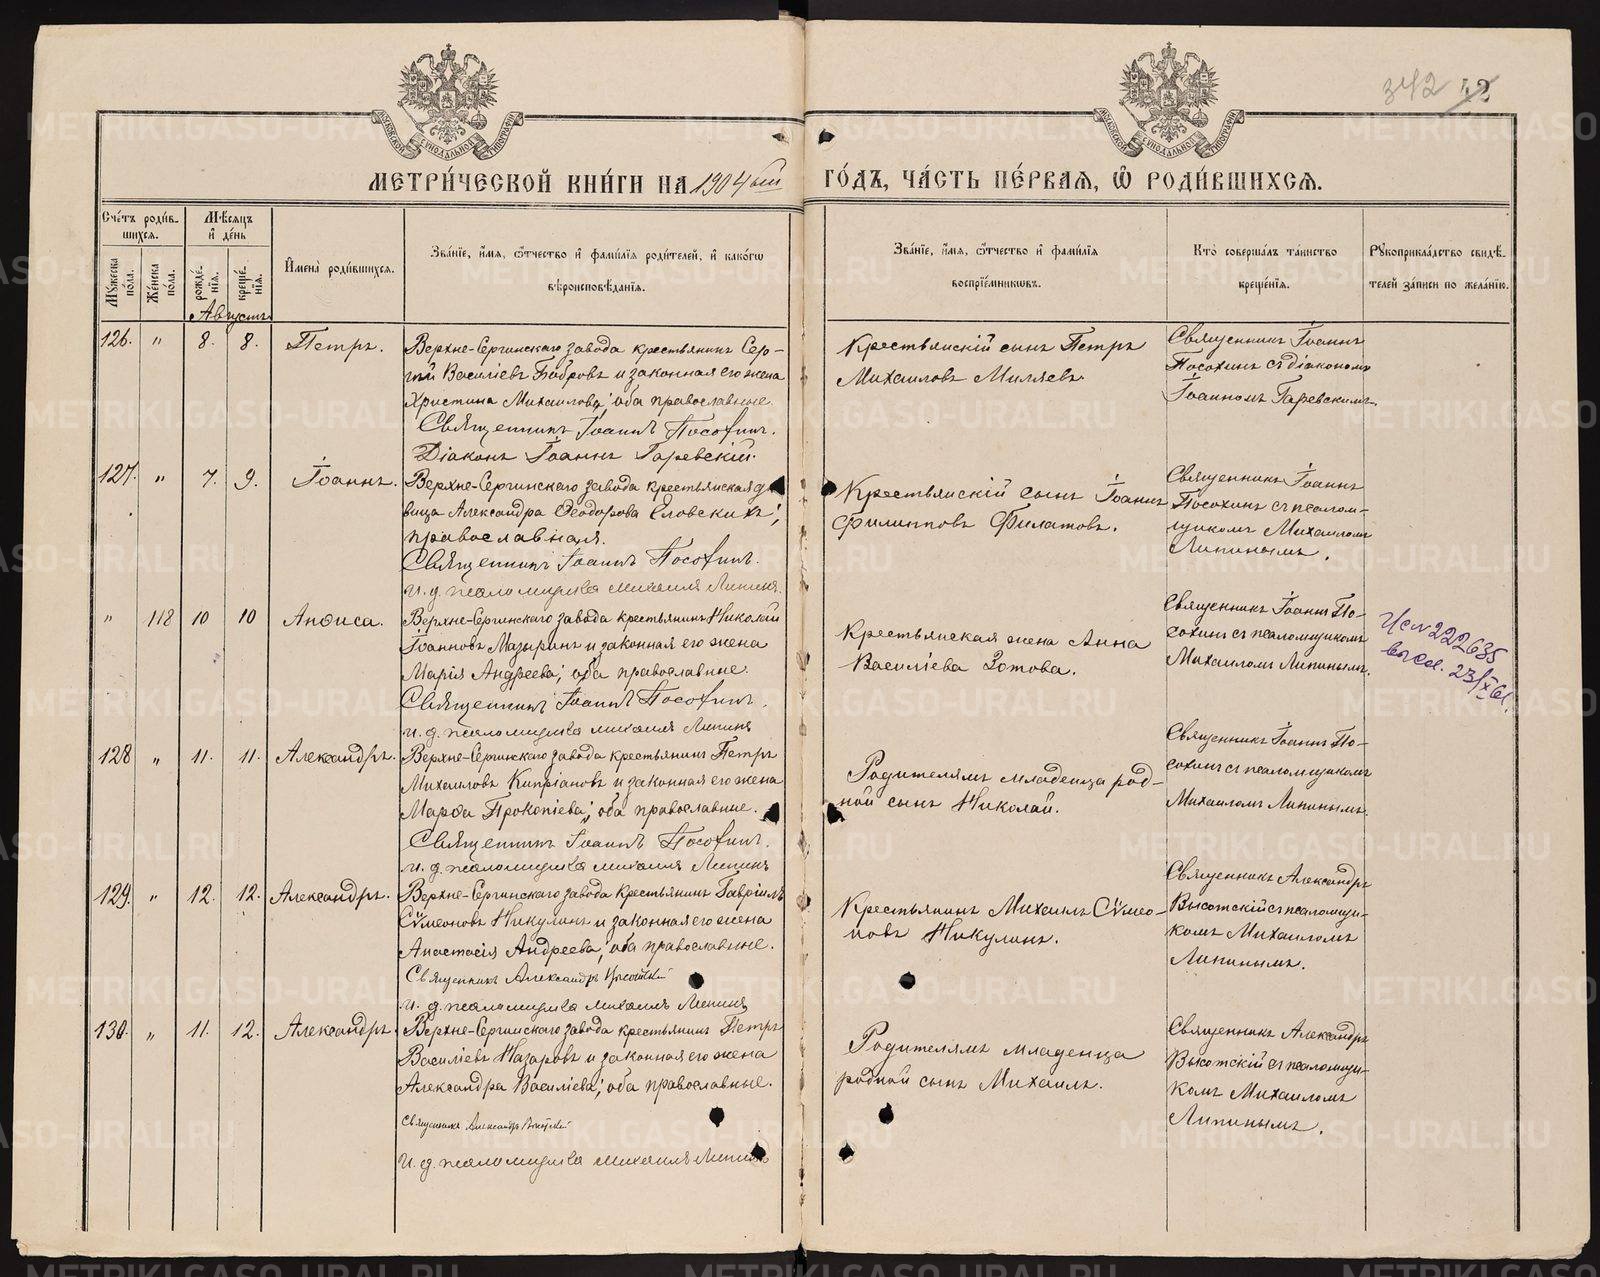 342 42
МОСКОВСКОЙ СѴНОДАЛЬНОЙ ТИПОГРАФІИ
МОСКОВСКОЙ СѴНОДАЛЬНОЙ ТИПОГРАФІИ
МЕТРИ́ЧЕСКОЙ КНИ́ГИ НА 1904ый ГО́ДЪ, ЧА́СТЬ ПЕ́РВАЯ, Ѡ҆ РОДИ́ВШИХСЯ.
Сче́тъ роди́в-
шихся.
Мѣ́сяцъ
и҆ де́нь
Му́жеска по́ла.
Же́нска по́ла.
рожде́нїя.
креще́нїя.
И҆мена̀ роди́вшихся.
Зва́нїе, и҆́мя, ѻ҆́тчество и҆ фами́лїя роди́телей, и҆ како́гѡ
вѣроисповѣ́данїя.
Зва́нїе, и҆́мя, ѻ҆́тчество и҆ фами́лїя
воспрїе́мниковъ.
Кто̀ соверша́лъ та́инство
креще́нїя.
Рукоприкла́дство свидѣ́-
телей за́писи по жела́нїю.
Августъ
126. " 8. 8. Петръ.
Верхне-Сергинскаго завода крестьянинъ Сер-
гій Василіевъ Бобровъ и законная его жена
Христина Михаилова; оба православные.
Священникъ Іоаннъ Посохинъ.
Діаконъ Іоаннъ Гаревскій.
Крестьянскій сынъ Петръ
Михаиловъ Миляевъ.
Священникъ Іоаннъ
Посохинъ съ діакономъ
Іоанномъ Гаревскимъ.
127. " 7. 9. Іоаннъ.
Верхне-Сергинскаго завода крестьянская дѣ-
вица Александра Ѳеодорова Еловскихъ;
православная.
Священникъ Іоаннъ Посохинъ.
и. д. псаломщика Михаилъ Липинъ.
Крестьянскій сынъ Іоаннъ
Филипповъ Филатовъ.
Священникъ Іоаннъ
Посохинъ съ псалом-
щикомъ Михаиломъ
Липинымъ.
" 118 10 10 Анѳиса.
Верхне-Сергинскаго завода крестьянинъ Николай
Іоанновъ Мазыринъ и законная его жена
Марія Андреева; оба православные.
Священникъ Іоаннъ Посохинъ.
и. д. псаломщика Михаилъ Липинъ
Крестьянская жена Анна
Василіева Зотова.
Священникъ Іоаннъ По-
сохинъ съ псаломщикомъ
Михаиломъ Липинымъ.
№ 222635
23/X 61.
128 " 11. 11. Александръ.
Верхне-Сергинскаго завода крестьянинъ Петръ
Михаиловъ Кипріановъ и законная его жена
Марѳа Прокопіева; оба православные.
Священникъ Іоаннъ Посохинъ.
и. д. псаломщика Михаилъ Липинъ
Родителямъ младенца род-
ной сынъ Николай.
Священникъ Іоаннъ По-
сохинъ съ псаломщикомъ
Михаиломъ Липинымъ.
129. " 12. 12. Александръ.
Верхне-Сергинскаго завода крестьянинъ Гавріилъ
Сѵмеоновъ Никулинъ и законная его жена
Анастасія Андреева; оба православные.
Священникъ Александръ Высотскій
и. д. псаломщика Михаилъ Липинъ
Крестьянинъ Михаилъ Сѵмео-
новъ Никулинъ.
Священникъ Александръ
Высотскій съ псаломщи-
комъ Михаиломъ
Липинымъ.
130. " 11. 12. Александръ.
Верхне-Сергинскаго завода крестьянинъ Петръ
Василіевъ Назаровъ и законная его жена
Александра Василіева; оба православные.
Священникъ Александръ Высотскій
и. д. псаломщика Михаилъ Липинъ
Родителямъ младенца
родной сынъ Михаилъ.
Священникъ Александръ
Высотскій съ псаломщи-
комъ Михаиломъ
Липинымъ.
METRIKI.GASO-URAL.RU